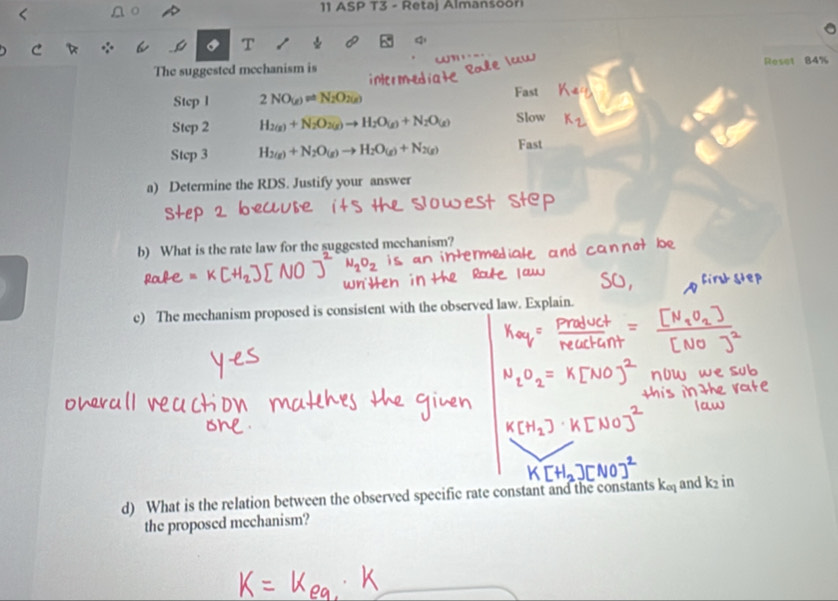 11 ASP T3 - Retaj Almansoori
T
Reset 84%
The suggested mechanism is
intermediate Rate law
Step 1 2 NO(g) ⇌ N₂O₂(g) Fast Keq
Step 2 H₂(g) + N₂O₂(g) → H₂O(g) + N₂O(g) Slow K₂
Step 3 H₂(g) + N₂O(g) → H₂O(g) + N₂(g) Fast
a) Determine the RDS. Justify your answer
Step 2 because its the slowest step
b) What is the rate law for the suggested mechanism?
Rate = K[H₂][NO]² N₂O₂ is an intermediate and cannot be
written in the Rate law
SO, first step
c) The mechanism proposed is consistent with the observed law. Explain.
yes
overall reaction matches the given
one.
Keq = product / reactant = [N₂O₂] / [NO]²
N₂O₂ = K[NO]² now we sub
this in the rate
law
K[H₂] · K[NO]²
K[H₂][NO]²
d) What is the relation between the observed specific rate constant and the constants keq and k₂ in
the proposed mechanism?
K = Keq · K